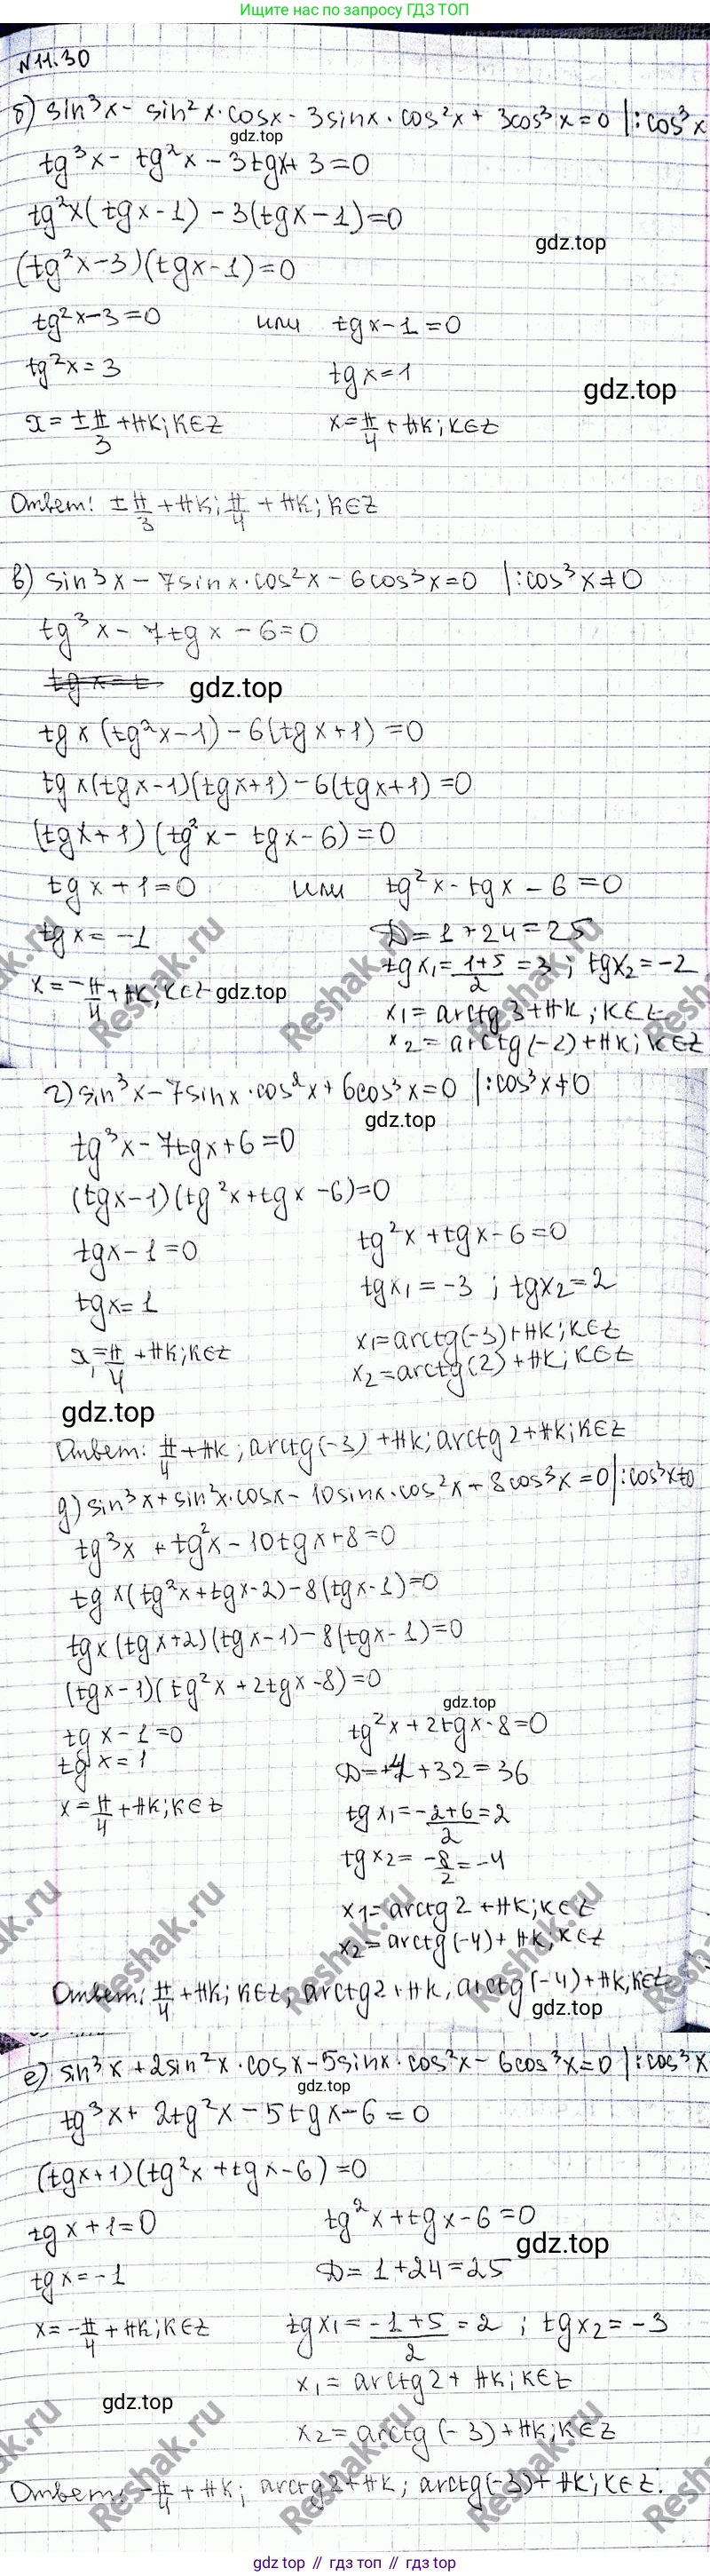 Ищите нас по запросу ГДЗ ТОП
№11.30
б) sin³x - sin²x·cosx - 3sinx·cos²x + 3cos³x = 0 |:cos³x
gdz.top
tg³x - tg²x - 3tgx + 3 = 0
tg²x(tgx - 1) - 3(tgx - 1) = 0
gdz.top
(tg²x - 3)(tgx - 1) = 0
tg²x - 3 = 0 или tgx - 1 = 0
tg²x = 3 tgx = 1
gdz.top
x = ±π/3 + πk; k∈Z x = π/4 + πk; k∈Z
Ответ: ±π/3 + πk; π/4 + πk; k∈Z
в) sin³x - 7sinx·cos²x - 6cos³x = 0 |:cos³x ≠ 0
tg³x - 7tgx - 6 = 0
gdz.top
tgx(tg²x - 1) - 6(tgx + 1) = 0
tgx(tgx - 1)(tgx + 1) - 6(tgx + 1) = 0
(tgx + 1)(tg²x - tgx - 6) = 0
tgx + 1 = 0 или tg²x - tgx - 6 = 0
tgx = -1 D = 1 + 24 = 25
tgx₁ = (1+5)/2 = 3; tgx₂ = -2
x = -π/4 + πk; k∈Z gdz.top
x₁ = arctg3 + πk; k∈Z
x₂ = arctg(-2) + πk; k∈Z
Reshak.ru Reshak.ru Reshak.ru
г) sin³x - 7sinx·cos²x + 6cos³x = 0 |:cos³x ≠ 0
gdz.top
tg³x - 7tgx + 6 = 0
(tgx - 1)(tg²x + tgx - 6) = 0
tgx - 1 = 0 tg²x + tgx - 6 = 0
tgx = 1 tgx₁ = -3; tgx₂ = 2
x = π/4 + πk; k∈Z x₁ = arctg(-3) + πk; k∈Z
x₂ = arctg(2) + πk; k∈Z
gdz.top
Ответ: π/4 + πk; arctg(-3) + πk; arctg2 + πk; k∈Z
д) sin³x + sin²x·cosx - 10sinx·cos²x + 8cos³x = 0 |:cos³x ≠ 0
tg³x + tg²x - 10tgx + 8 = 0
tgx(tg²x + tgx - 2) - 8(tgx - 1) = 0
tgx(tgx + 2)(tgx - 1) - 8(tgx - 1) = 0
(tgx - 1)(tg²x + 2tgx - 8) = 0
gdz.top
tgx - 1 = 0 tg²x + 2tgx - 8 = 0
tgx = 1 D = 4 + 32 = 36
x = π/4 + πk; k∈Z tgx₁ = (-2+6)/2 = 2
tgx₂ = -8/2 = -4
x₁ = arctg2 + πk; k∈Z
x₂ = arctg(-4) + πk; k∈Z
Reshak.ru Reshak.ru Reshak.ru
Ответ: π/4 + πk; k∈Z; arctg2 + πk, arctg(-4) + πk, k∈Z
gdz.top
е) sin³x + 2sin²x·cosx - 5sinx·cos²x - 6cos³x = 0 |:cos³x
gdz.top
tg³x + 2tg²x - 5tgx - 6 = 0
(tgx + 1)(tg²x + tgx - 6) = 0
tgx + 1 = 0 tg²x + tgx - 6 = 0
gdz.top
tgx = -1 D = 1 + 24 = 25
x = -π/4 + πk; k∈Z tgx₁ = (-1+5)/2 = 2; tgx₂ = -3
x₁ = arctg2 + πk; k∈Z
gdz.top
x₂ = arctg(-3) + πk; k∈Z
Reshak.ru Reshak.ru Reshak.ru
Ответ: -π/4 + πk; arctg2 + πk; arctg(-3) + πk; k∈Z.
gdz.top // гдз топ // гдз.топ